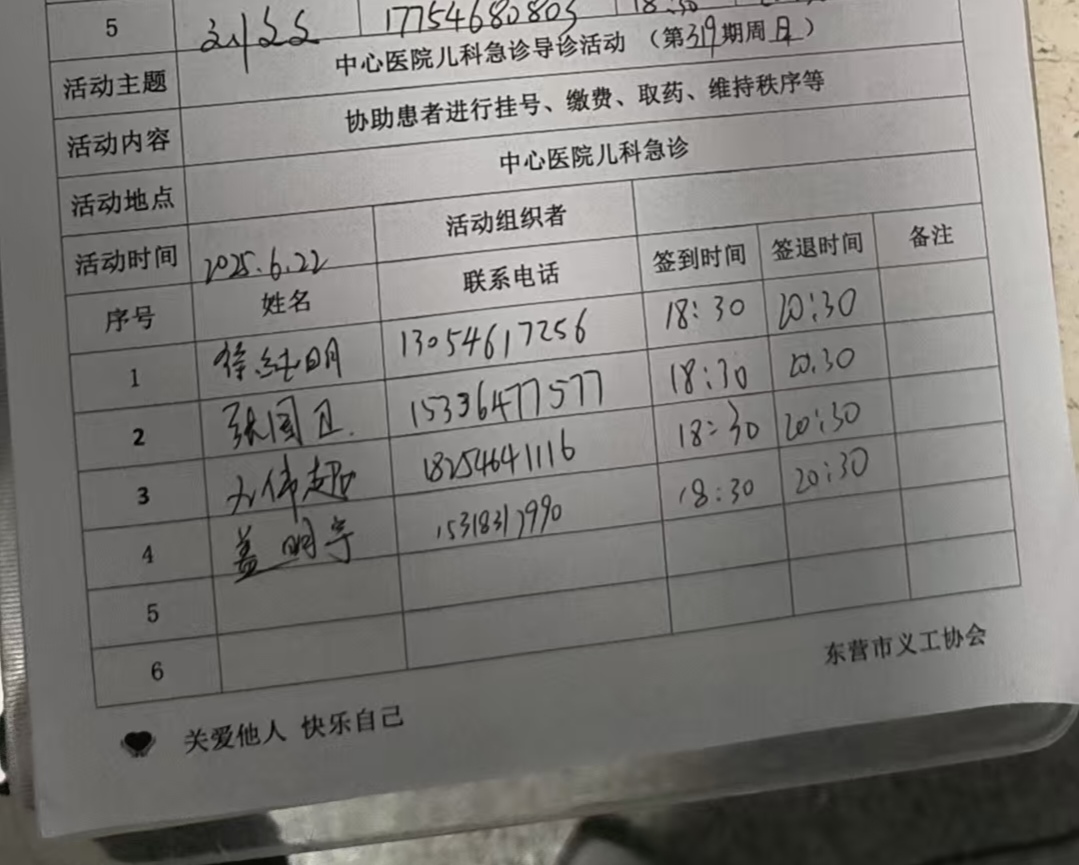 5 17754680803 18:30
活动主题 中心医院儿科急诊导诊活动 (第319期周日)
活动内容 协助患者进行挂号、缴费、取药、维持秩序等
活动地点 中心医院儿科急诊
活动时间 2025.6.22 活动组织者
序号 姓名 联系电话 签到时间 签退时间 备注
1 徐纯明 13054617256 18:30 20:30
2 张国卫 15336477577 18:30 20:30
3 伟超 18254641116 18:30 20:30
4 盖明宇 15318317990 18:30 20:30
5
6
东营市义工协会
关爱他人 快乐自己